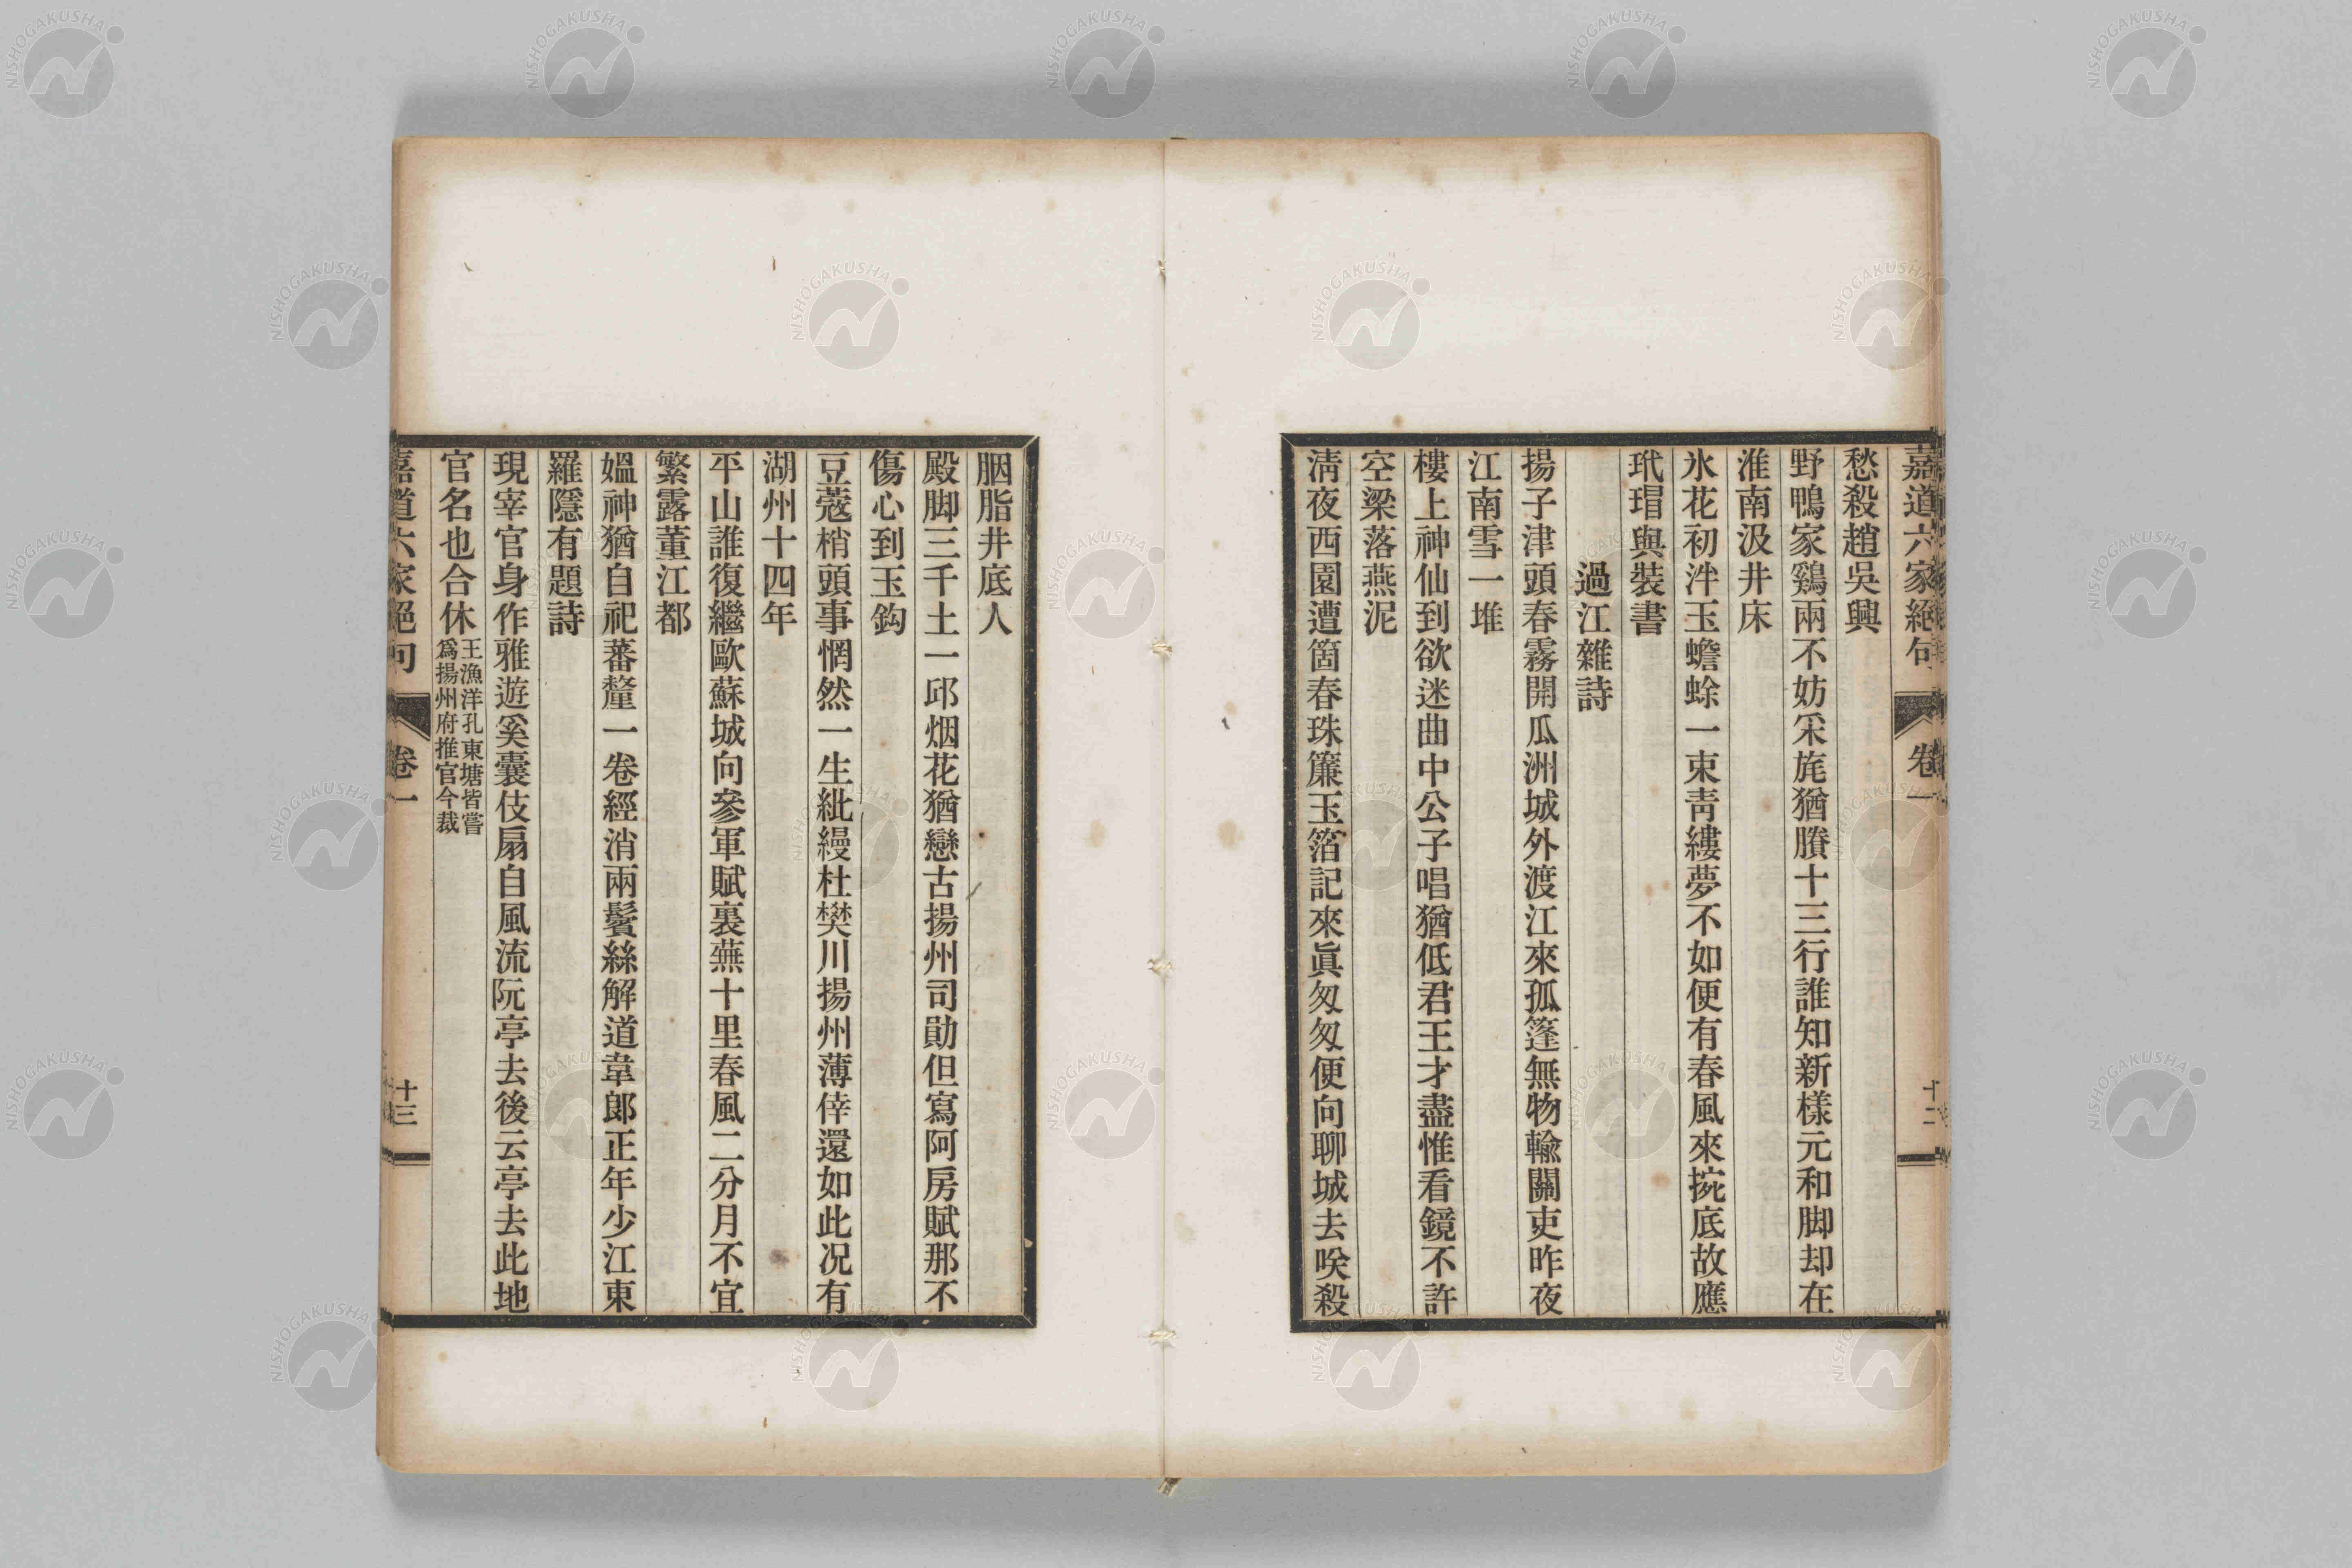 嘉道六家絕句 卷一 十二
愁殺趙吳興
野鴨家鷄兩不妨采旄猶賸十三行誰知新樣元和脚却在
淮南汲井床
氷花初泮玉蟾蜍一束靑縷夢不如便有春風來捥底故應
玳瑁與裝書
過江雜詩
揚子津頭春霧開瓜洲城外渡江來孤篷無物輸關吏昨夜
江南雪一堆
樓上神仙到欲迷曲中公子唱猶低君王才盡惟看鏡不許
空梁落燕泥
淸夜西園遭箇春珠簾玉箔記來眞匆匆便向聊城去唉殺
胭脂井底人
殿脚三千土一邱烟花猶戀古揚州司勛但寫阿房賦那不
傷心到玉鈎
豆蔻梢頭事惘然一生紕縵杜樊川揚州薄倖還如此况有
湖州十四年
平山誰復繼歐蘇城向參軍賦裏蕪十里春風二分月不宜
繁露董江都
媼神猶自祀蕃釐一卷經消兩鬢絲解道韋郞正年少江東
羅隱有題詩
現宰官身作雅遊奚囊伎扇自風流阮亭去後云亭去此地
官名也合休王漁洋孔東塘皆嘗
爲揚州府推官今裁
嘉道六家絕句 卷一 十三
NISHOGAKUSHA